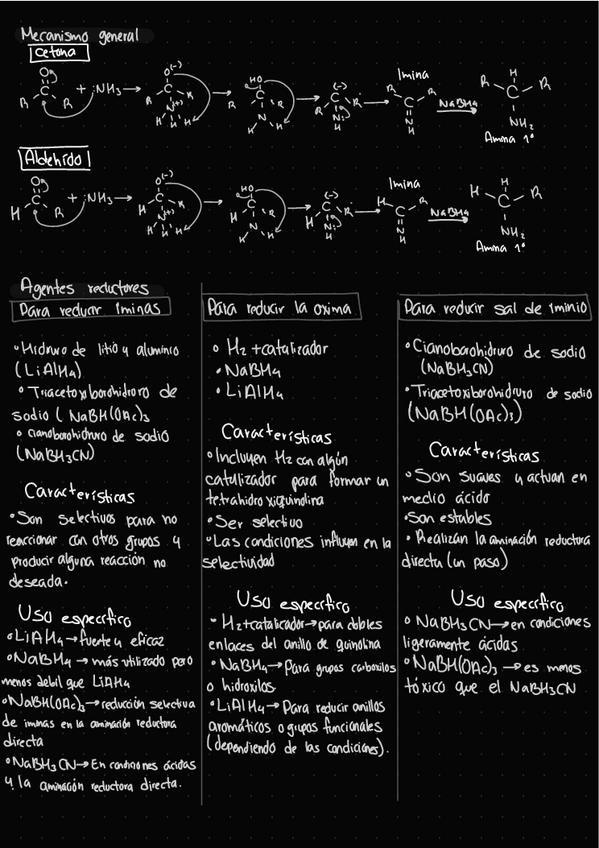 Mecanismo general
Cetona
O
C
R R
+ :NH₃
O(-)
R C R
N(+)
H H H
HO
R C R
N
H H
(-)
R C R
N:
H
Imina
R R
C
NH
NaBH₄
H
R C R
NH₂
Amina 1°
Aldehído
O
H C R
+ :NH₃
O(-)
H C R
N(+)
H H H
HO
H C R
N
H H
(-)
H C R
N:
H
Imina
H R
C
N
H
NaBH₄
H
H C R
NH₂
Amina 1°
Agentes reductores
Para reducir Iminas
• Hidruro de litio y aluminio
(LiAlH₄)
• Triacetoxiborohidroro de
sodio (NaBH(OAc)₃
• cianoborohidruro de sodio
(NaBH₃CN)
Características
• Son selectivos para no
reaccionar con otros grupos y
producir alguna reacción no
deseada.
Uso específico
• LiAlH₄→fuerte y eficaz
• NaBH₄→más utilizado pero
menos debil que LiAlH₄
• NaBH(OAc)₃→reducción selectiva
de iminas en la aminación reductora
directa
• NaBH₃CN→En condiciones ácidas
y la aminación reductora directa.
Para reducir la oxima
• H₂+catalizador
• NaBH₄
• LiAlH₄
Características
• Incluyen H₂ con algún
catalizador para formar un
tetrahidroxiquinolina
• Ser selectivo
• Las condiciones influyen en la
selectividad
Uso específico
• H₂+catalizador→para dobles
enlaces del anillo de quinolina
• NaBH₄→Para grupos carboxilos
o hidroxilos
• LiAlH₄→Para reducir anillos
aromáticos o grupos funcionales
(dependiendo de las condiciones).
Para reducir sal de iminio
• Cianoborohidruro de sodio
(NaBH₃CN)
• Triacetoxiborohidruro de sodio
(NaBH(OAc)₃)
Características
• Son suaves y actuan en
medio ácido
• Son estables
• Realizan la aminación reductora
directa (un paso)
Uso específico
• NaBH₃CN→en condiciones
ligeramente ácidas
• NaBH(OAc)₃→es menos
tóxico que el NaBH₃CN